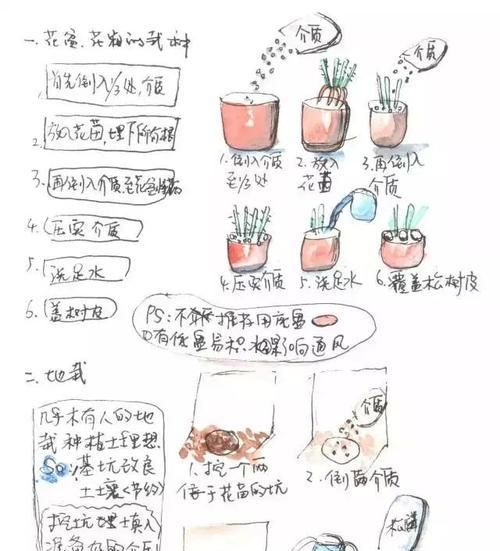 一、花盆、花箱的栽种
首先倒入⅓处,介质
2.放入花苗,埋下所有根
3.再倒入介质至花盆
4.压实介质
5.浇足水
6.盖树皮
介质
介质
1.倒介质
至⅓处
2.放入
花苗
3.再倒入
介质
4.压实介质
5.浇足水
6.覆盖松树皮
PS:不推荐用底盘
有底盘易积水影响通风
二、地栽
几乎木有人的地
栽种植土理想
So,基坑改良
土壤<节约>
挖坑埋土填入
准备好的介质
1.挖一个两
倍于花苗的坑
介质
2.倒两介质
松鳞